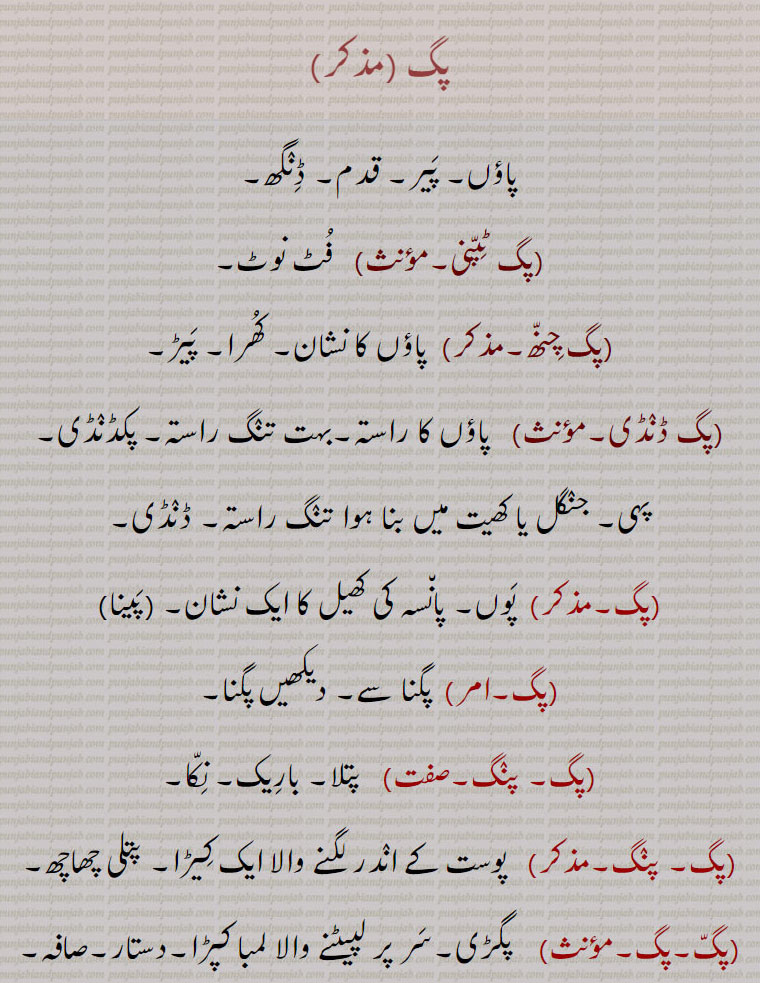 پگ (مذکر)
پاؤں۔ پَیر۔ قدم۔ ڈِنگھ۔
(پگ ٹِپّنی۔مؤنث) فُٹ نوٹ۔
(پگ چِنھّ۔مذکر) پاؤں کا نشان۔ کُھرا۔ پَیڑ۔
(پگ ڈنڈی۔مؤنث) پاؤں کا راستہ۔بہت تنگ راستہ۔ پکڈنڈی۔
پہی۔ جنگل یا کھیت میں بنا ہوا تنگ راستہ۔ ڈنڈی۔
(پگ۔مذکر) پَوں۔ پانّسہ کی کھیل کا ایک نشان۔ (پَینا)
(پگ۔امر) پگنا سے۔ دیکھیں پگنا۔
(پگ۔ پنگ۔صفت) پتلا۔ بارِیک۔ نِکّا۔
(پگ۔ پنگ۔مذکر) پوست کے اندر لگنے والا ایک کِیڑا۔ پتلی چھاچھ۔
(پگّ۔پگ۔مؤنث) پگڑی۔ سَر پر لپیٹنے والا لمبا کپڑا۔دستار۔صافہ۔